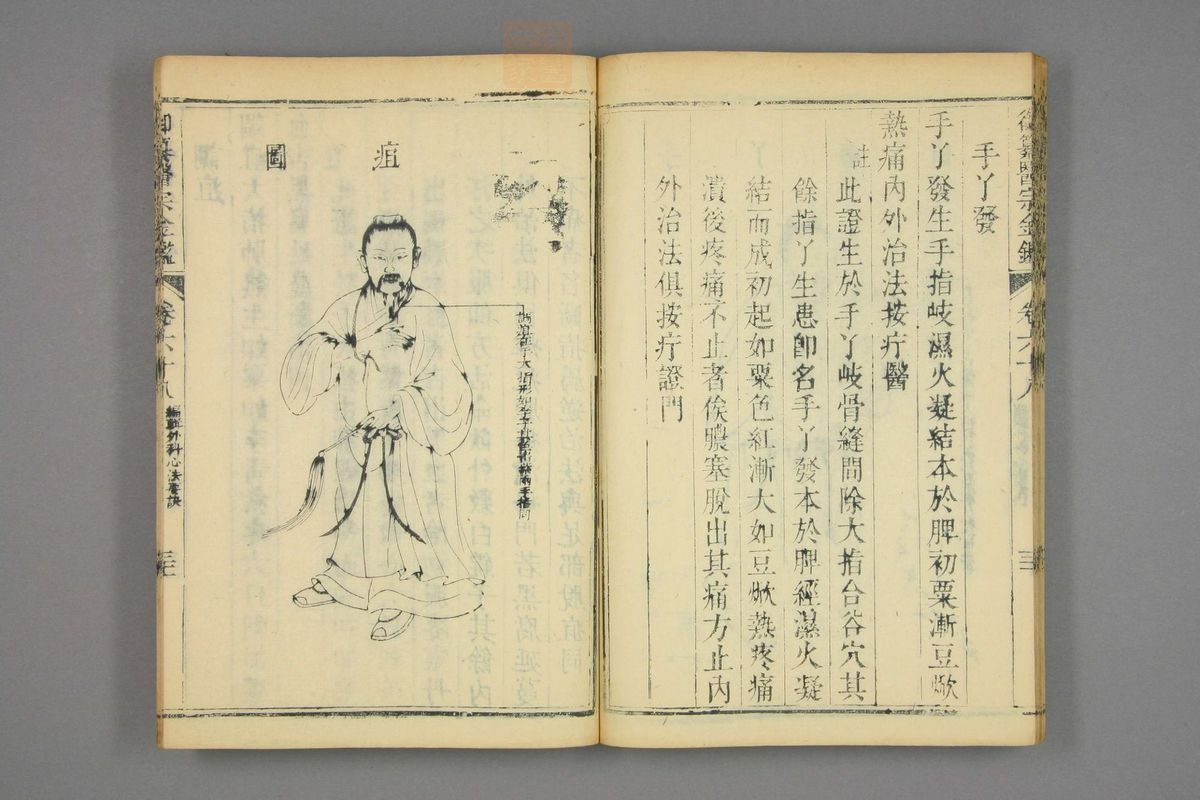 手丫發
手丫發生手指岐濕火凝結本於脾初粟漸豆焮
熱痛內外治法按疔醫
註此證生於手丫岐骨縫間除大指合谷穴其
餘指丫生患卽名手丫發本於脾經濕火凝
結而成初起如粟色紅漸大如豆焮熱疼痛
潰後疼痛不止者俟膿塞脫出其痛方止內
外治法俱按疔證門
疽
圖
御纂醫宗金鑑
卷六十八
編輯外科心法要訣